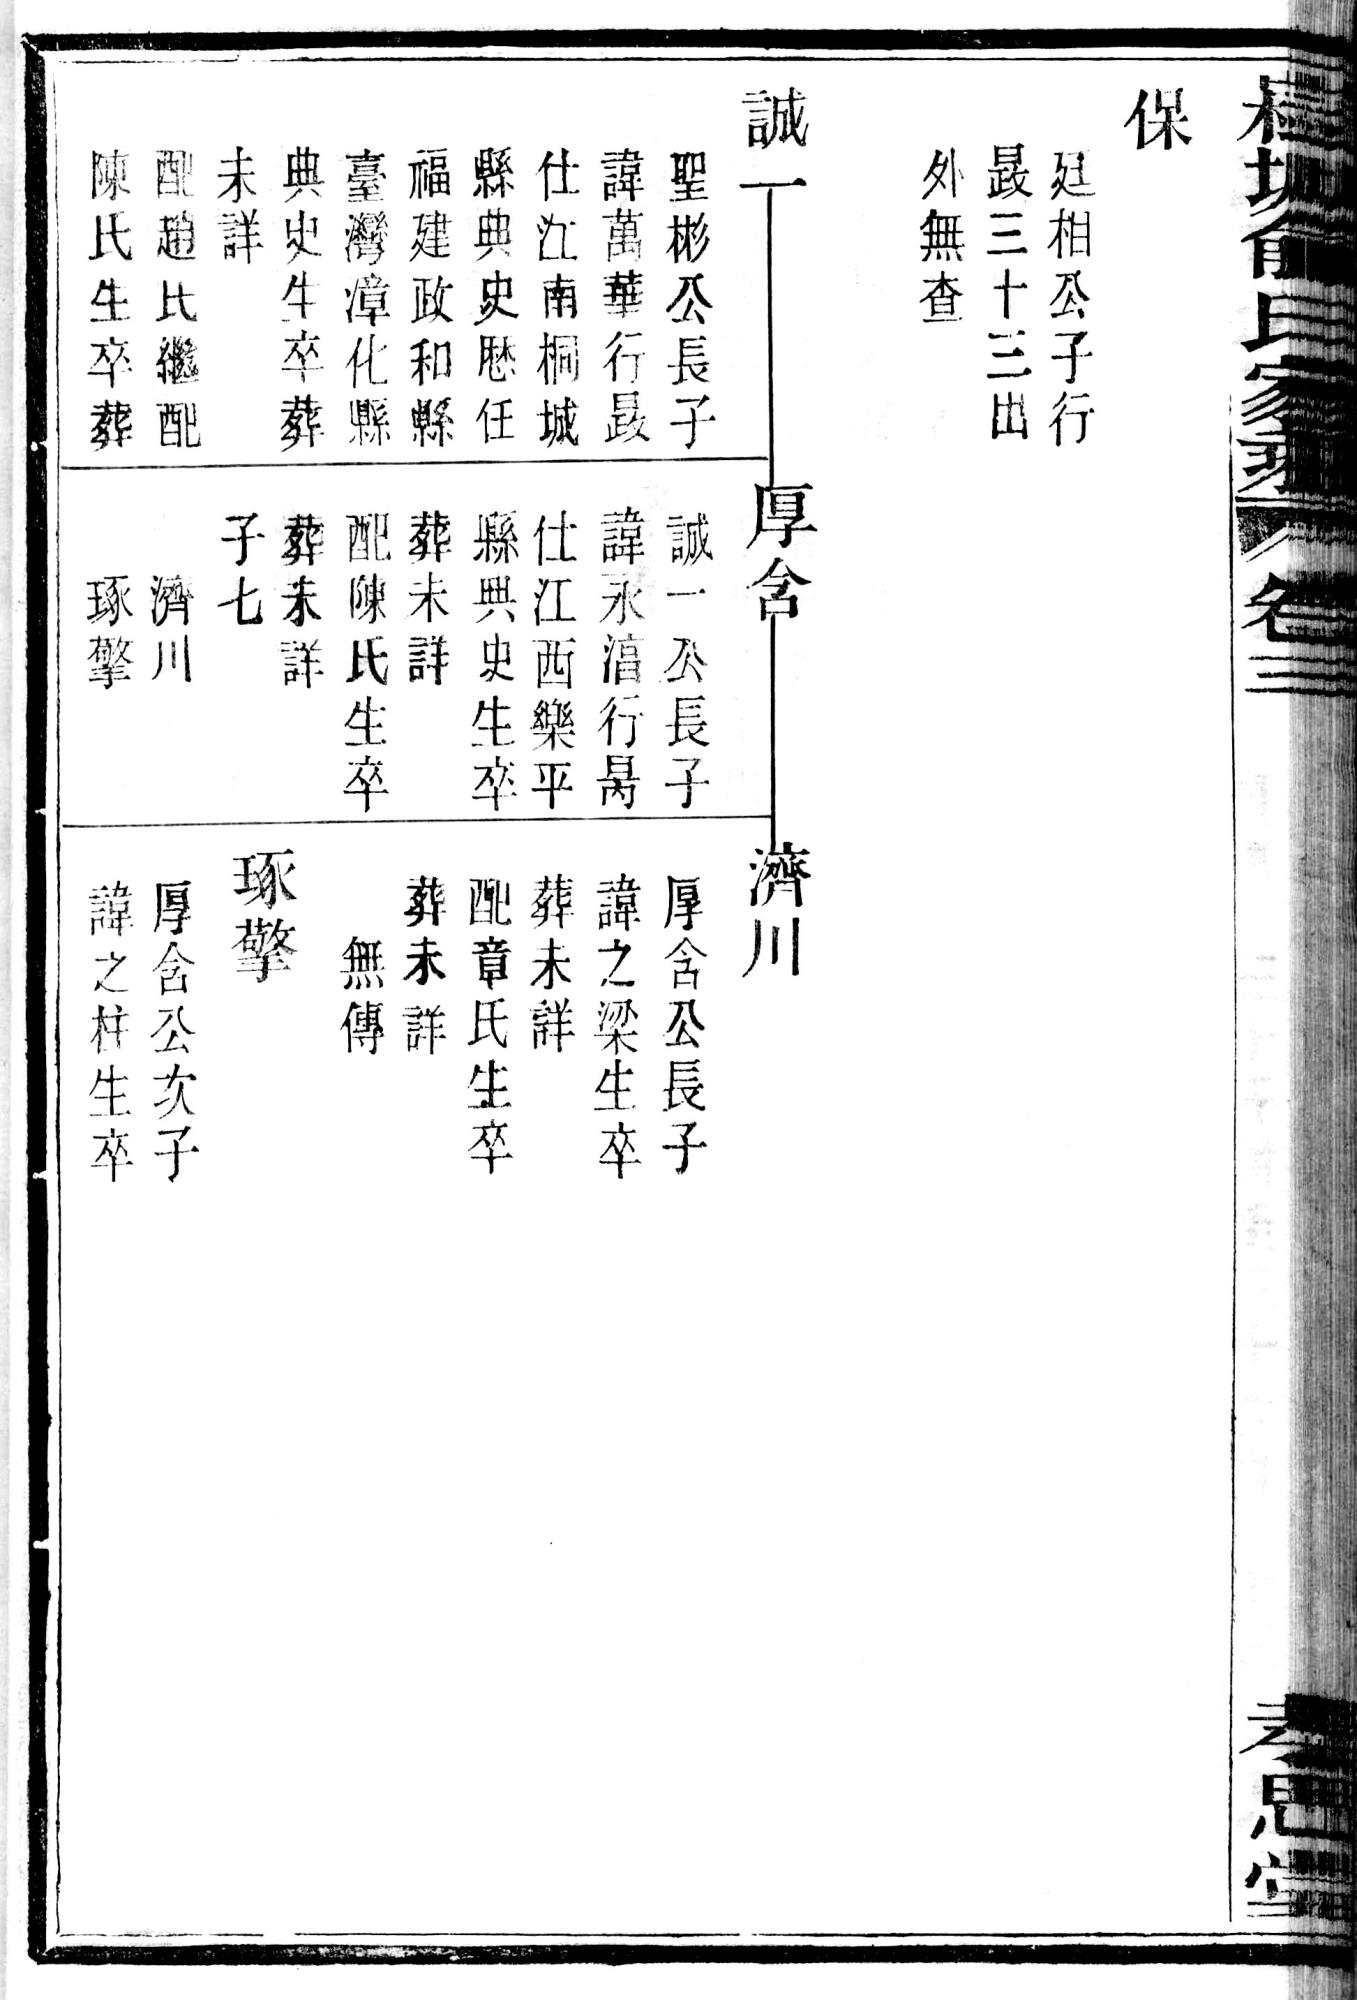 氏家乘 卷三
思堂
保
廷相公子行
三十三出
外無查
誠一
聖彬公長子
諱萬華行
仕江南桐城
縣典史厯任
福建政和縣
臺灣漳化縣
典史生卒葬
未詳
配趙氏繼配
陳氏生卒葬
厚含
誠一公長子
諱永行昺
仕江西樂平
縣典史生卒
葬未詳
配陳氏生卒
葬未詳
子七
濟川
琢擎
濟川
厚含公長子
諱之梁生卒
葬未詳
配章氏生卒
葬未詳
無傳
琢擎
厚含公次子
諱之柱生卒